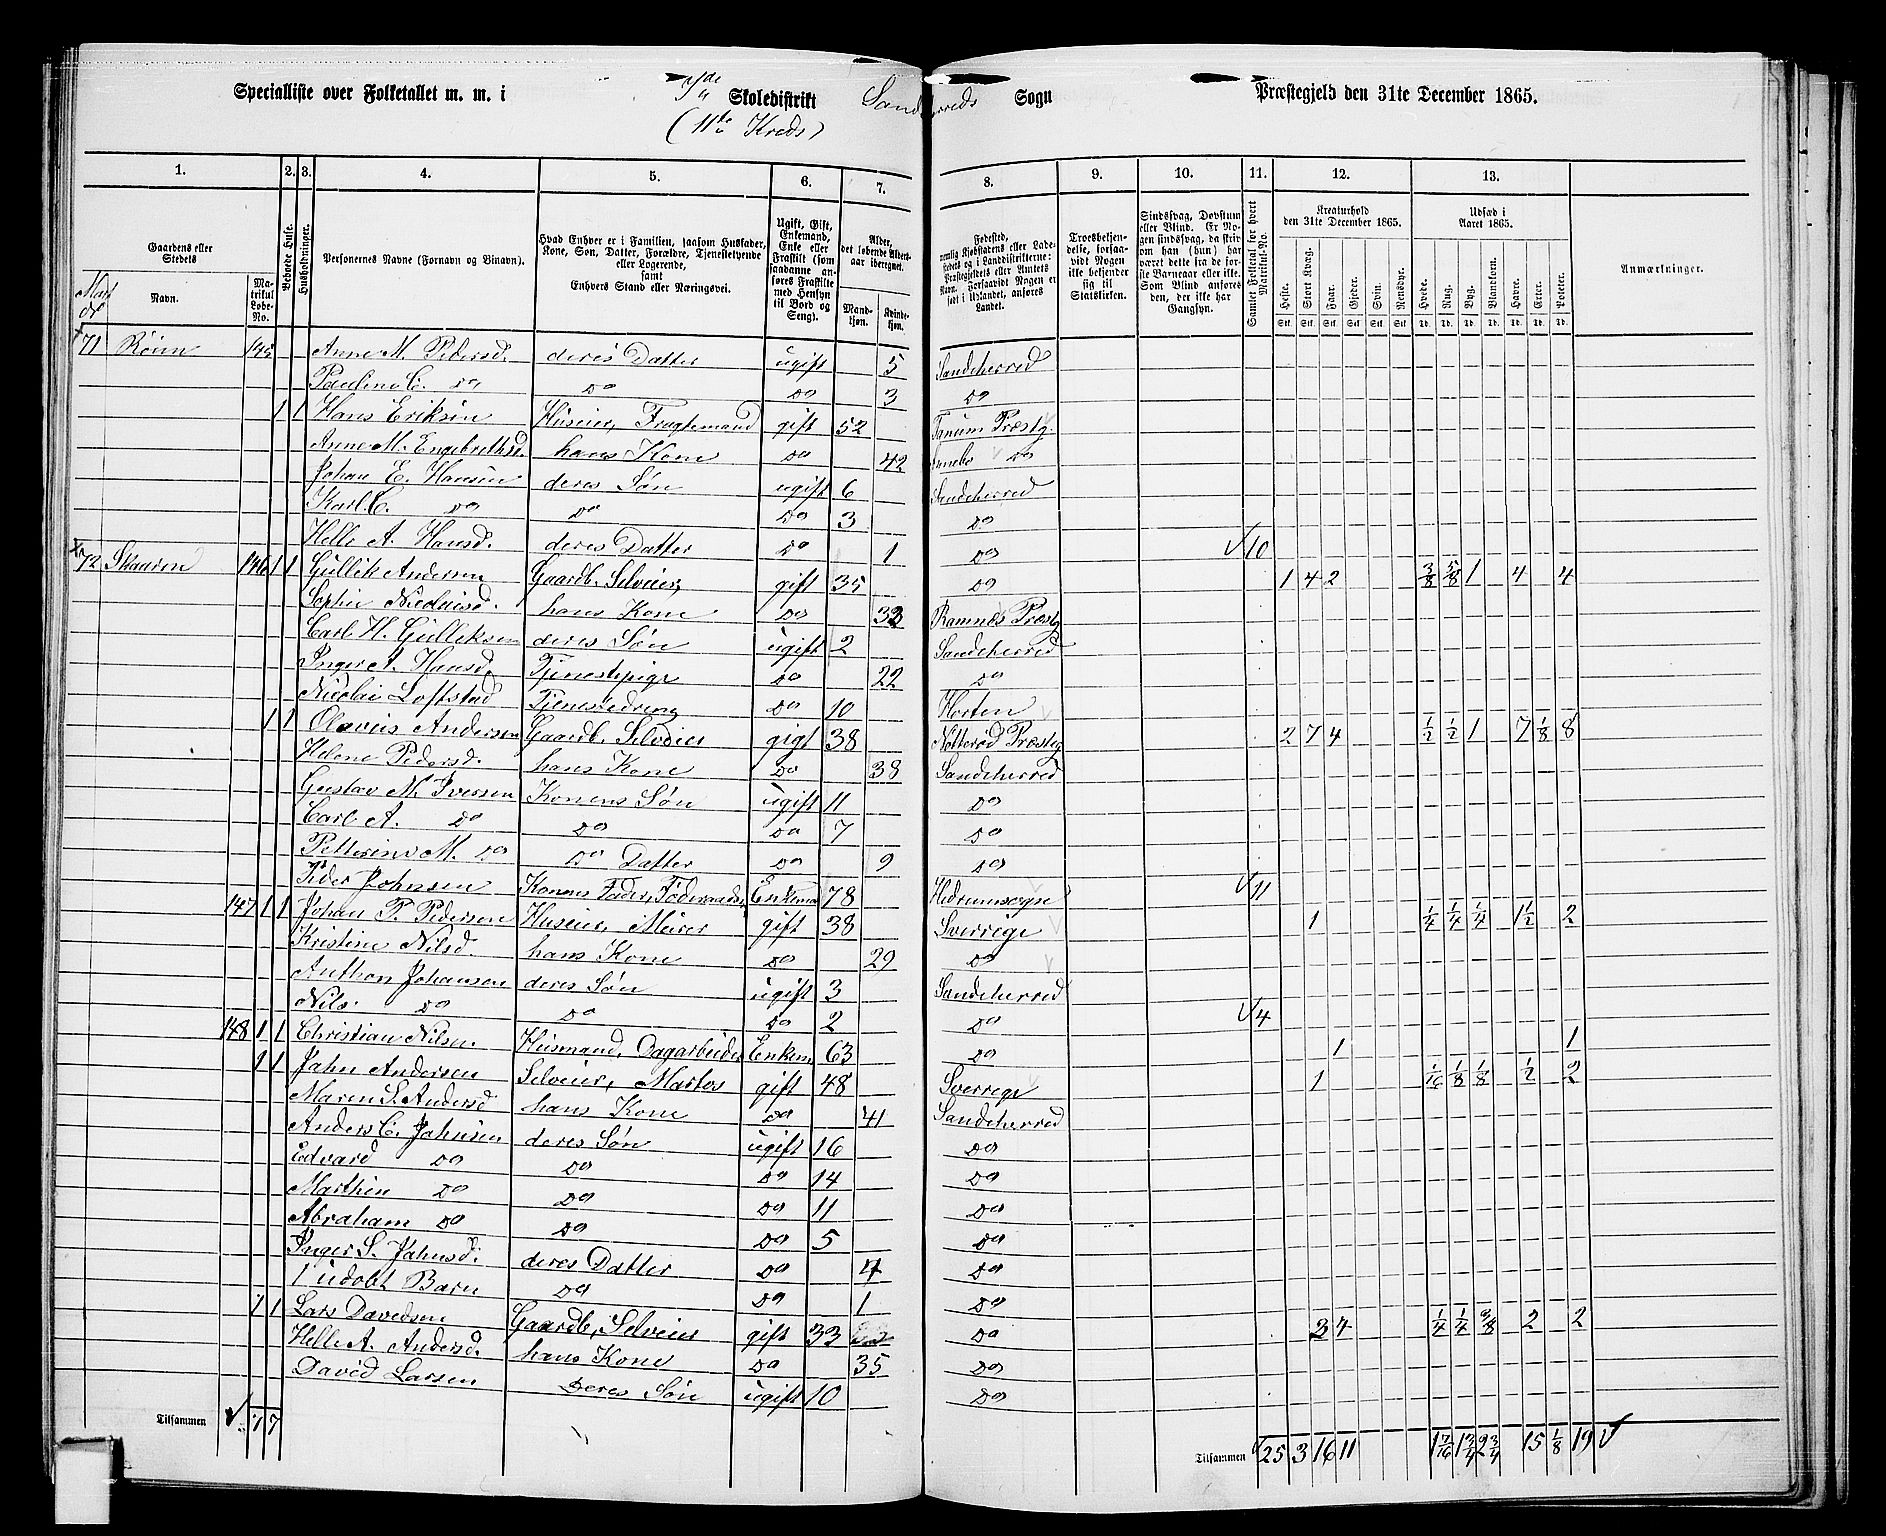 Specialliste over Folketallet m. m. i 7de Skoledistrikt Sandeherreds Sogn Præstegjeld den 31te December 1865.
(11te Kreds)
1. 2. 3. 4. 5. 6. 7. 8. 9. 10. 11. 12. 13.
Gaardens eller Stedets Navn. Matrikul Løbe-No. Beboede Huse. Husholdninger. Personernes Navne (Fornavn og Binavn).
Hvad Enhver er i Familien, saasom Husfader, Kone, Søn, Datter, Forældre, Tjenestetyende eller Logerende, samt Enhvers Stand eller Næringsvei.
Ugift, Gift, Enkemand, Enke eller Fraskilt (som saadanne anføres Fraskilte med Hensyn til Bord og Seng).
Alder, det løbende Alders-aar iberegnet. Mandkjøn. Kvindekjøn.
Fødested, nemlig Kjøbstadens eller Ladestedets og i Landdistrikterne: Præstegjeldets eller Amtets Navn. Forsaavidt Nogen er født i Udlandet, anføres Landet.
Troesbekjendelse, forsaavidt Nogen ikke bekjender sig til Statskirken.
Sindssvag, Døvstum eller Blind. Er Nogen sindssvag, da skrives om han (hun) har været dette fra de første Barneaar eller ikke. Som Blind anføres den, der ikke har Gangsyn.
Samlet Folketal for hvert Matrikul-No.
Kreaturhold den 31te December 1865. Heste. Stort Kvæg. Faar. Gjeder. Svin. Rensdyr.
Udsæd i Aaret 1865. Hvede. Rug. Byg. Blandkorn. Havre. Erter. Poteter.
Anmærkninger.
71 Röim 145 Anne M. Pedersd. deres Datter ugift 5 Sandeherred
Pauline C. Do Do Do 3 Do
1 1 Hans Eriksen Huseier, Fragtemand gift 52 Tanum Præstg.
Anne M. Engebrethsd. hans Kone Do 42 Do
Johan E. Hansen deres Søn ugift 6 Sandeherred
Karl C. Do Do Do 3 Do
Helle A. Hansd. deres Datter Do 1 Do 10
72 Skauen 146 1 1 Gullik Andersen Gaardb. Selveier, gift 35 Do 1 4 2 3/8 5/8 1 4 4
Sophie Nicolaisd. hans Kone Do 33 Ramnes Præstg
Carl H. Gulliksen deres Søn ugift 2 Sandeherred
Inger A. Hansd. Tjenestepige Do 22 Do
Nicolai Loftstad Tjenestedreng Do 10 Horten
1 1 Olavus Andersen Gaardb. Selveier gigt 38 Nøtterød Præstg 2 7 4 1/2 1/2 1 7 1/8 8
Helene Pedersd. hans Kone Do 38 Sandeherred
Gustav M. Iversen Konens Søn ugift 11 Do
Carl A. Do Do Do 7 Do
Petterine M. Do Do Datter Do 9 Do
Peder Johnsen Konens Fader, Føderaads. Enkema 78 Hedrumsogn 11
147 1 1 Johan P. Pedersen Huseier, Murer gift 38 Sverrige 1 1/4 1/4 1/4 1 1/2 2
Kristine Nilsd. hans Kone Do 29 Do
Anthon Johansen deres Søn ugift 3 Sandeherred
Nils Do Do Do 2 Do 4
148 1 1 Christian Nilsen Husmand, Dagarbeider Enkem. 63 Do 1 1
1 1 Jahn Andersen Selveier, Matros gift 48 Sverrige 1 1/16 1/8 1/8 1/2 2
Maren S. Andersd hans Kone Do 41 Sandeherred
Anders C. Jahnsen deres Søn ugift 16 Do
Edvard Do Do Do 14 Do
Marthin Do Do Do 11 Do
Abraham Do Do Do 5 Do
Inger S. Jahnsd. deres Datter Do 4 Do
1 udøbt Barn Do Do 1 Do
1 1 Lars Davidsen Gaardb, Selveier gift 33 Do 3 4 1/4 1/4 3/8 2 2
Helle A. Andersd. hans Kone Do 35 Do
David Larsen Deres Søn ugift 10 Do
Tilsammen 7 7 Tilsammen 25 3 16 11 1 7/16 1 3/4 2 3/4 15 1/8 19